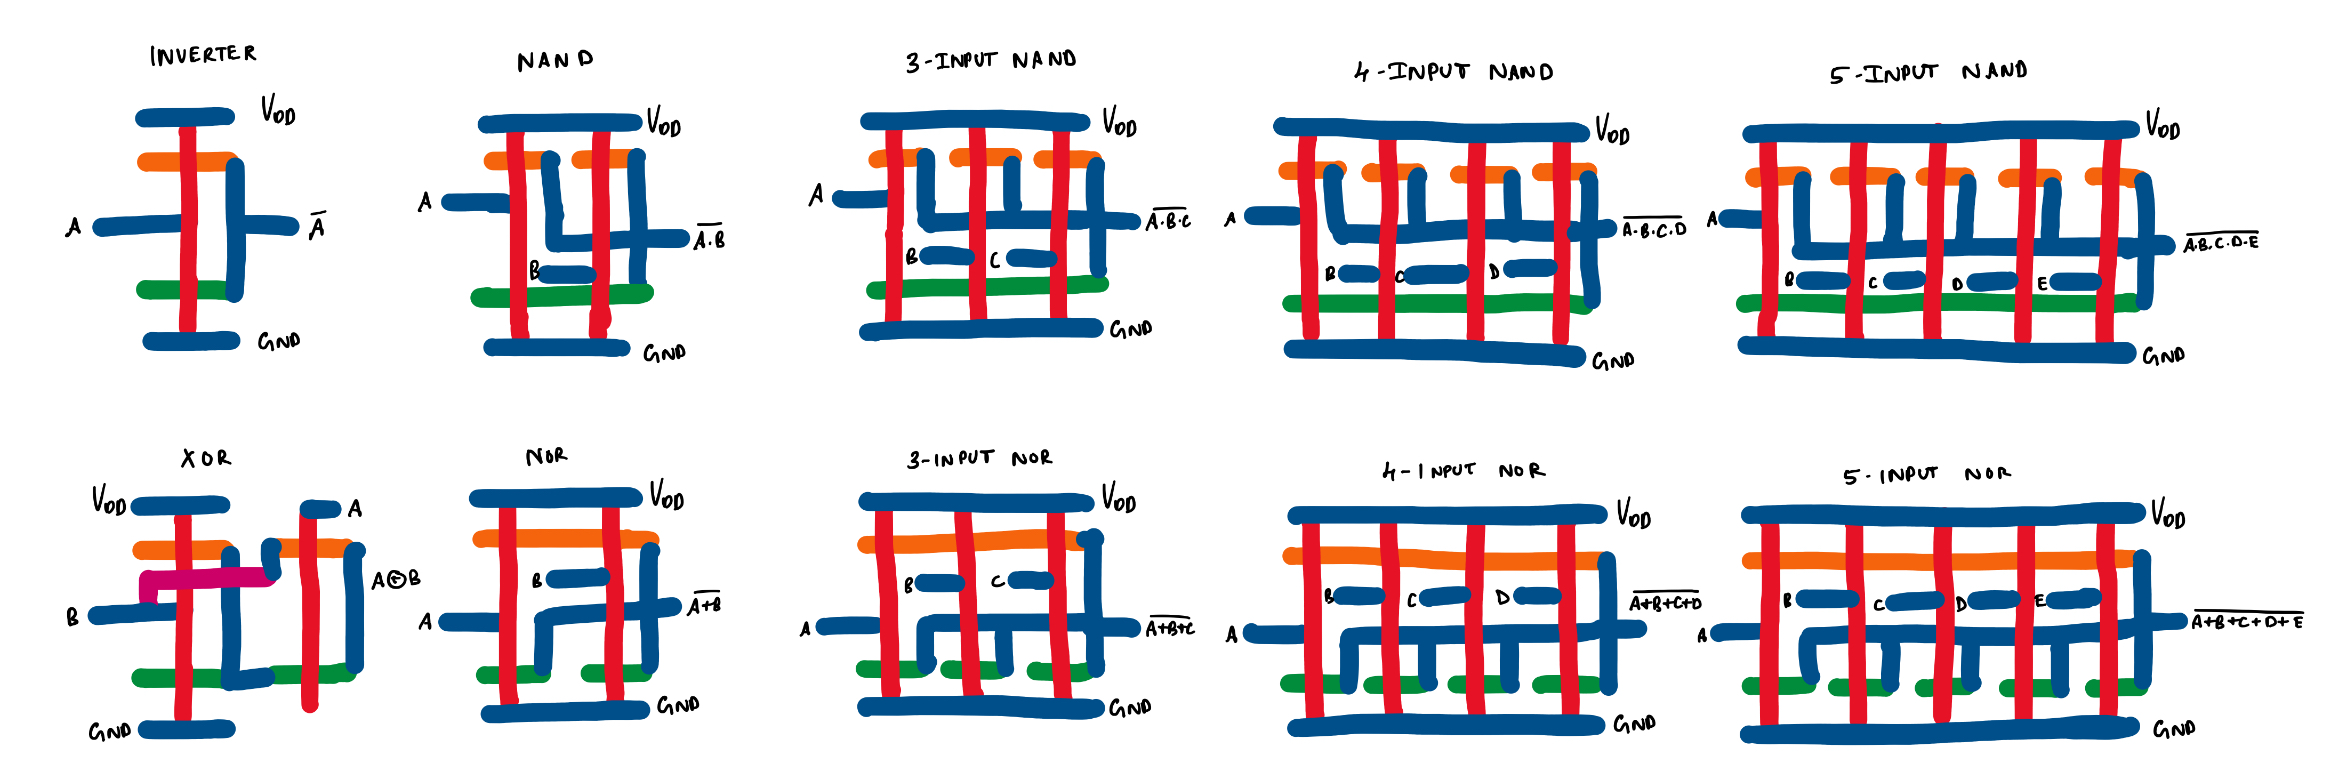 INVERTER
VDD
A
A̅
GND
NAND
VDD
A
A̅.̅B̅
B
GND
3-INPUT NAND
VDD
A
A̅.̅B̅.̅C̅
B
C
GND
4-INPUT NAND
VDD
A
A̅.̅B̅.̅C̅.̅D̅
B
C
D
GND
5-INPUT NAND
VDD
A
A̅.̅B̅.̅C̅.̅D̅.̅E̅
B
C
D
E
GND
XOR
VDD
A
A⊕B
B
GND
NOR
VDD
B
A̅+̅B̅
A
GND
3-INPUT NOR
VDD
B
C
A
A̅+̅B̅+̅C̅
GND
4-INPUT NOR
VDD
B
C
D
A̅+̅B̅+̅C̅+̅D̅
A
GND
5-INPUT NOR
VDD
B
C
D
E
A
A̅+̅B̅+̅C̅+̅D̅+̅E̅
GND